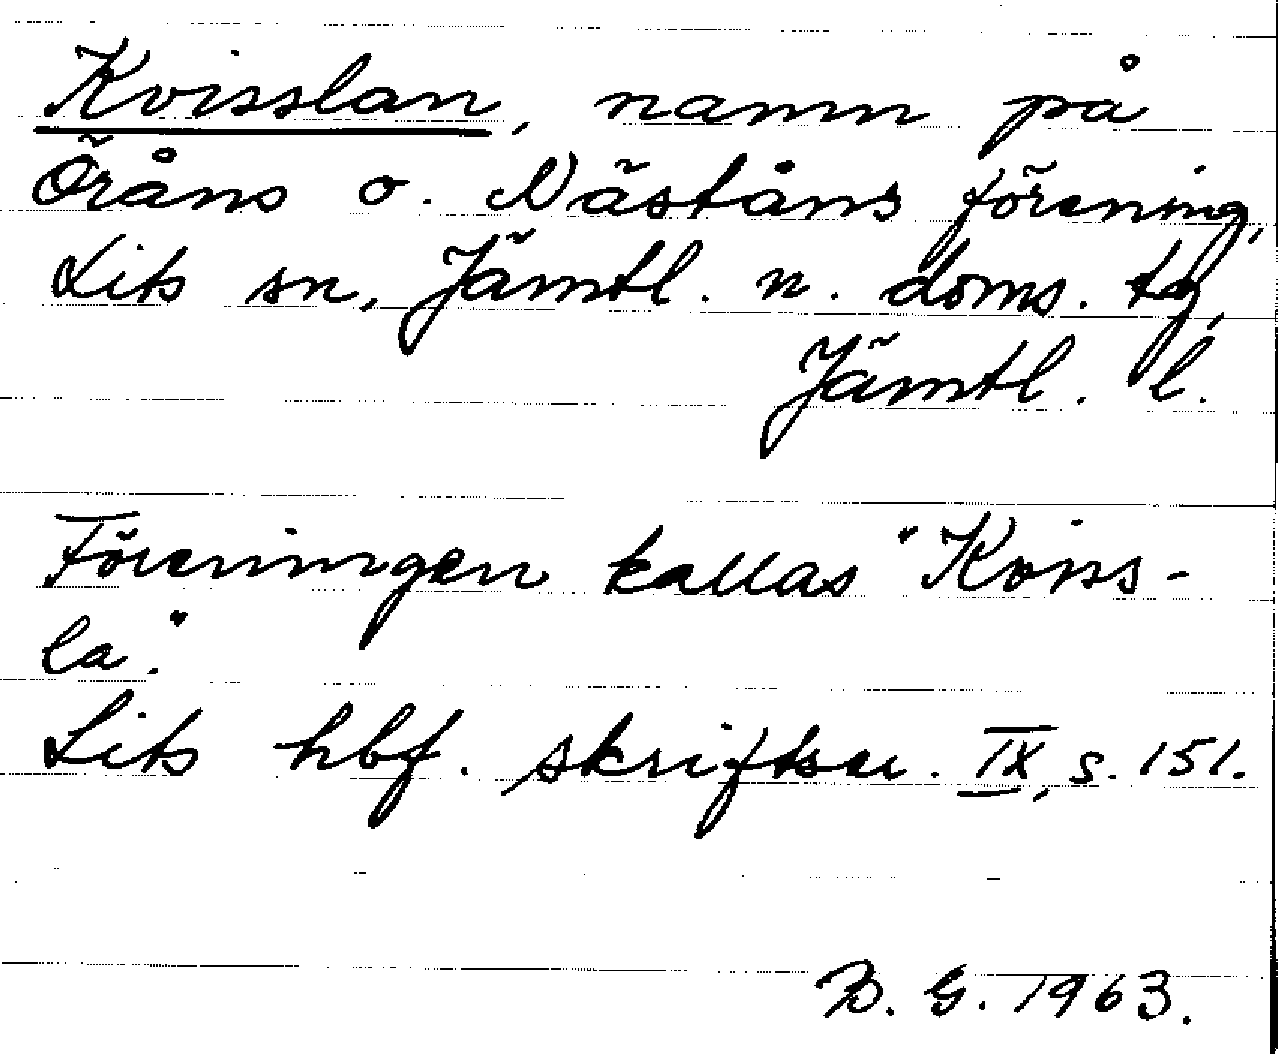 Kvisslan, namn på
Öråns o. Näståns förening,
Lits sn, Jämtl. n. doms. tg,
Jämtl. l.
Föreningen kallas "Kviss-
la".
Lits hbf. skriftser. IX, s. 151.
B. G. 1963.